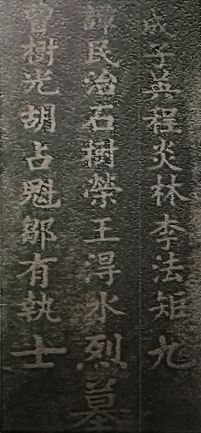 成子英程炎林李法矩九
韓民治石樹榮王得水烈墓
曾樹光胡占魁鄒有執士